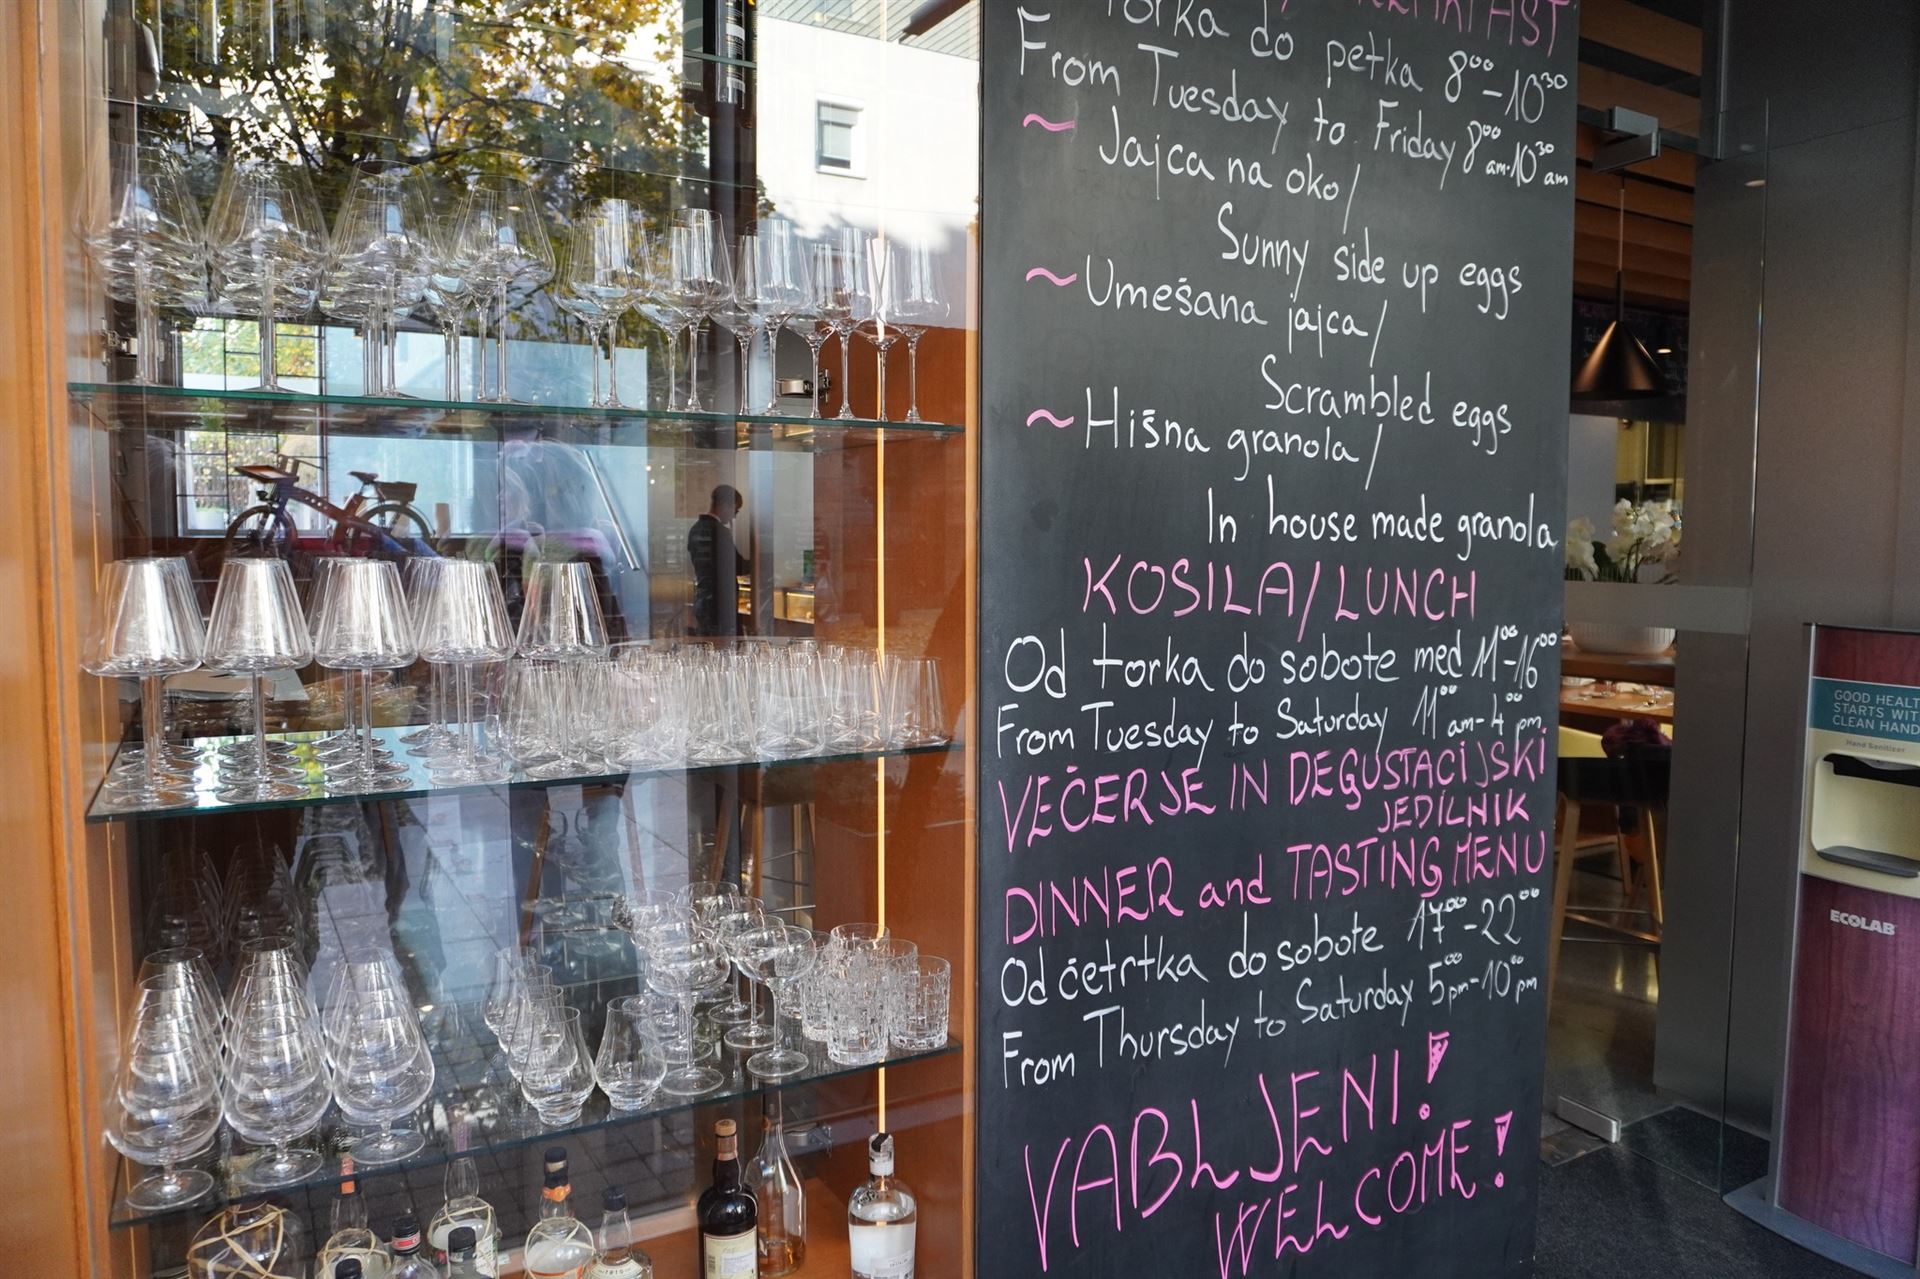 Torka do petka 8⁰⁰-10³⁰
From Tuesday to Friday 8⁰⁰am-10³⁰am
~ Jajca na oko/
Sunny side up eggs
~ Umešana jajca/
Scrambled eggs
~ Hišna granola/
In house made granola
KOSILA/LUNCH
Od torka do sobote med 11⁰⁰-16⁰⁰
From Tuesday to Saturday 11⁰⁰am-4⁰⁰pm
VEČERJE IN DEGUSTACIJSKI
JEDILNIK
DINNER and TASTING MENU
Od četrtka do sobote 17⁰⁰-22⁰⁰
From Thursday to Saturday 5⁰⁰pm-10⁰⁰pm
VABLJENI!
WELCOME!
GOOD HEALT
STARTS WIT
CLEAN HAND
Hand Sanitizer
ECOLAB